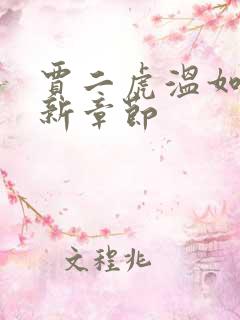 贾二虎温如
新章节
文程兆